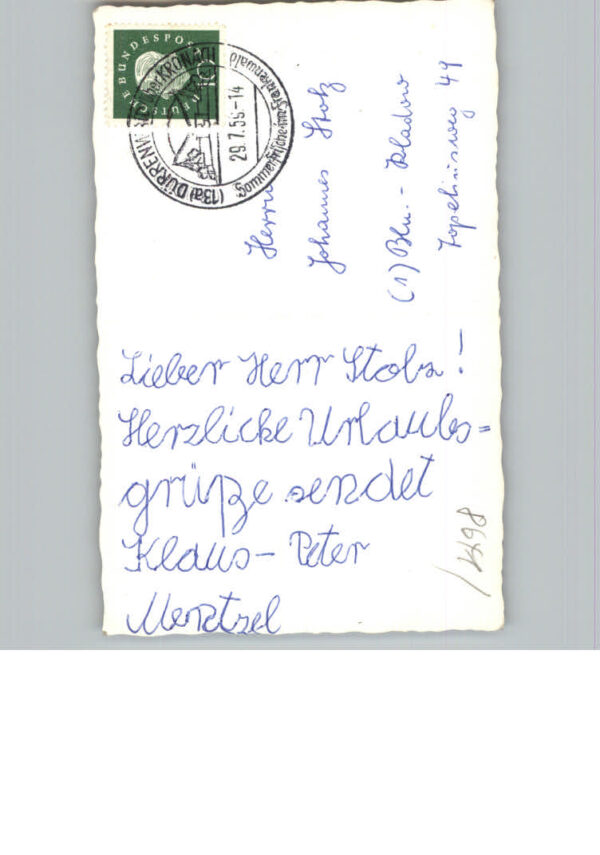 DEUTSCHE BUNDESPOST
10
(13a) DÜRRENWAID über KRONACH
29.7.59-14
Sommerfrische im Frankenwald
Herrn
Johannes Stolz
(1) Bln. - Kladow
49
Lieber Herr Stolz!
Herzlicke Urlaubs=
grüße sendet
Klaus- Peter
Mentzel